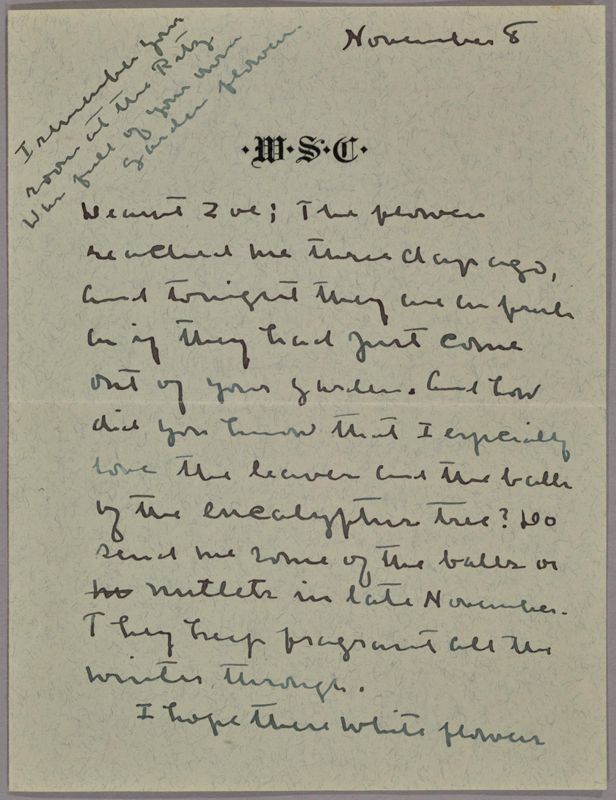 I remember your
room at the Ritz
was full of your own
garden flowers.
November 8
·W·S·C·
Dearest Zoë; The flowers
reached me three days ago,
and tonight they are as fresh
as if they had just come
out of your garden. And how
did you know that I especially
love the leaves and the balls
of the eucalyptus tree? Do
send me some of the balls or
nutlets in late November.
They keep fragrant all the
winter through.
I hope these white flowers